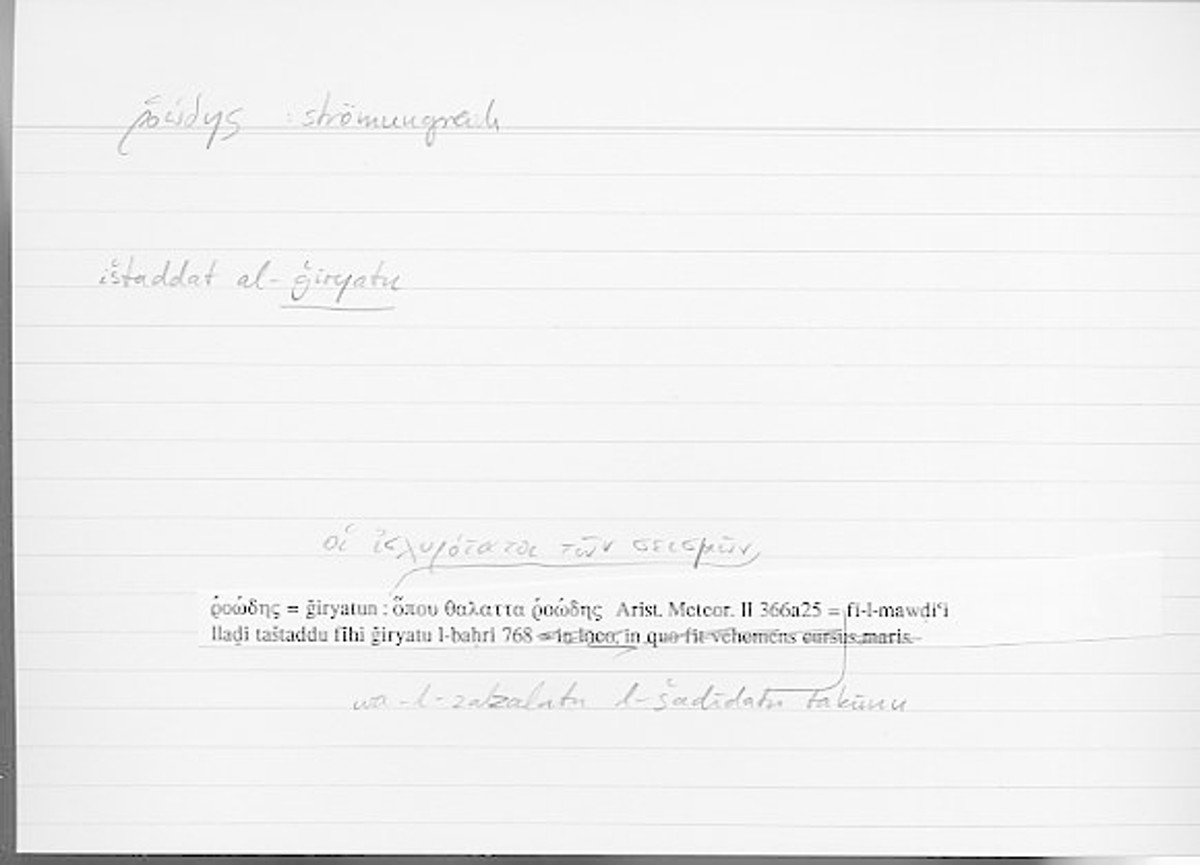 ῥοώδης : strömungreich
ištaddat al-ǧiryatu
οἱ ἰσχυρότατοι τῶν σεισμῶν
ῥοώδης = ǧiryatun : ὅπου θαλαττα ῥοώδης Arist. Meteor. II 366a25 = fī-l-mawḍiʿi
llaḏī taštaddu fīhi ǧiryatu l-baḥri 768 = in loco, in quo fit vehemens cursus maris.
wa-l-zalzalatu l-šadīdatu takūnu